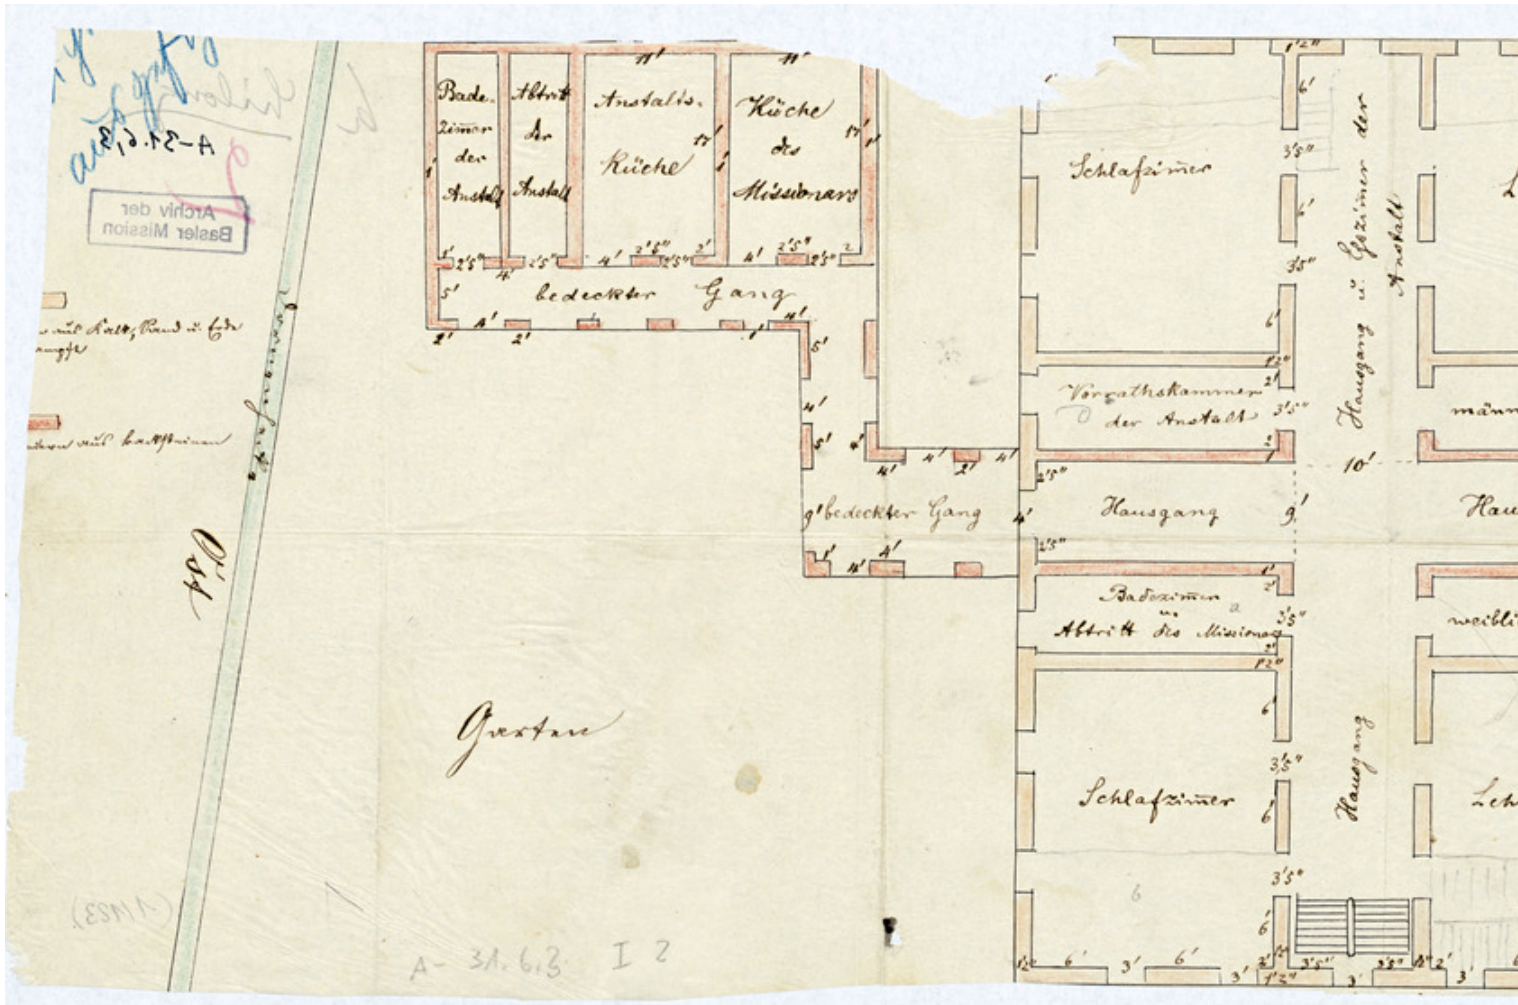 A-31.6,3
Archiv der
Basler Mission
aus Kalk, Sand u. Erde
aus Backsteinen
Ost
Bade-
zim̄er
der
Anstalt
Abtritt
der
Anstalt
Anstalts-
Küche
Küche
des
Missionars
11'
11'
17'
17'
1'
1'
1'
1'
2'5"
4'
2'5"
4'
2'5"
2'5"
2'
4'
2'5"
2'5"
2
5'
bedeckter Gang
2'
4'
2'
1'
4'
5'
4'
5'
4'
4'
4'
2'
4'
9'
bedeckter Gang
4'
1'
4'
4'
Garten
Schlafzim̄er
Vorrathskammer
der Anstalt
Hausgang
9'
Badezim̄er
u.
Abtritt des Missionars
Schlafzim̄er
Hausgang u. Esszim̄er der
Anstalt
10'
Hausgang
1'2"
6'
3'5"
6'
3'5"
6'
1'2"
2'
3'5"
2
1'
2'5"
2'5"
1'
2'
3'5"
2'
1'2"
6'
3'5"
6'
3'5"
6'
6
1'2"
6'
3'
6'
3'
2'
1'2"
3'5"
3'
3'5"
1'2"
2'
3'
6
L
männ
Hau
weibli
Leh
(1/1123)
A- 31.6,3 I 2